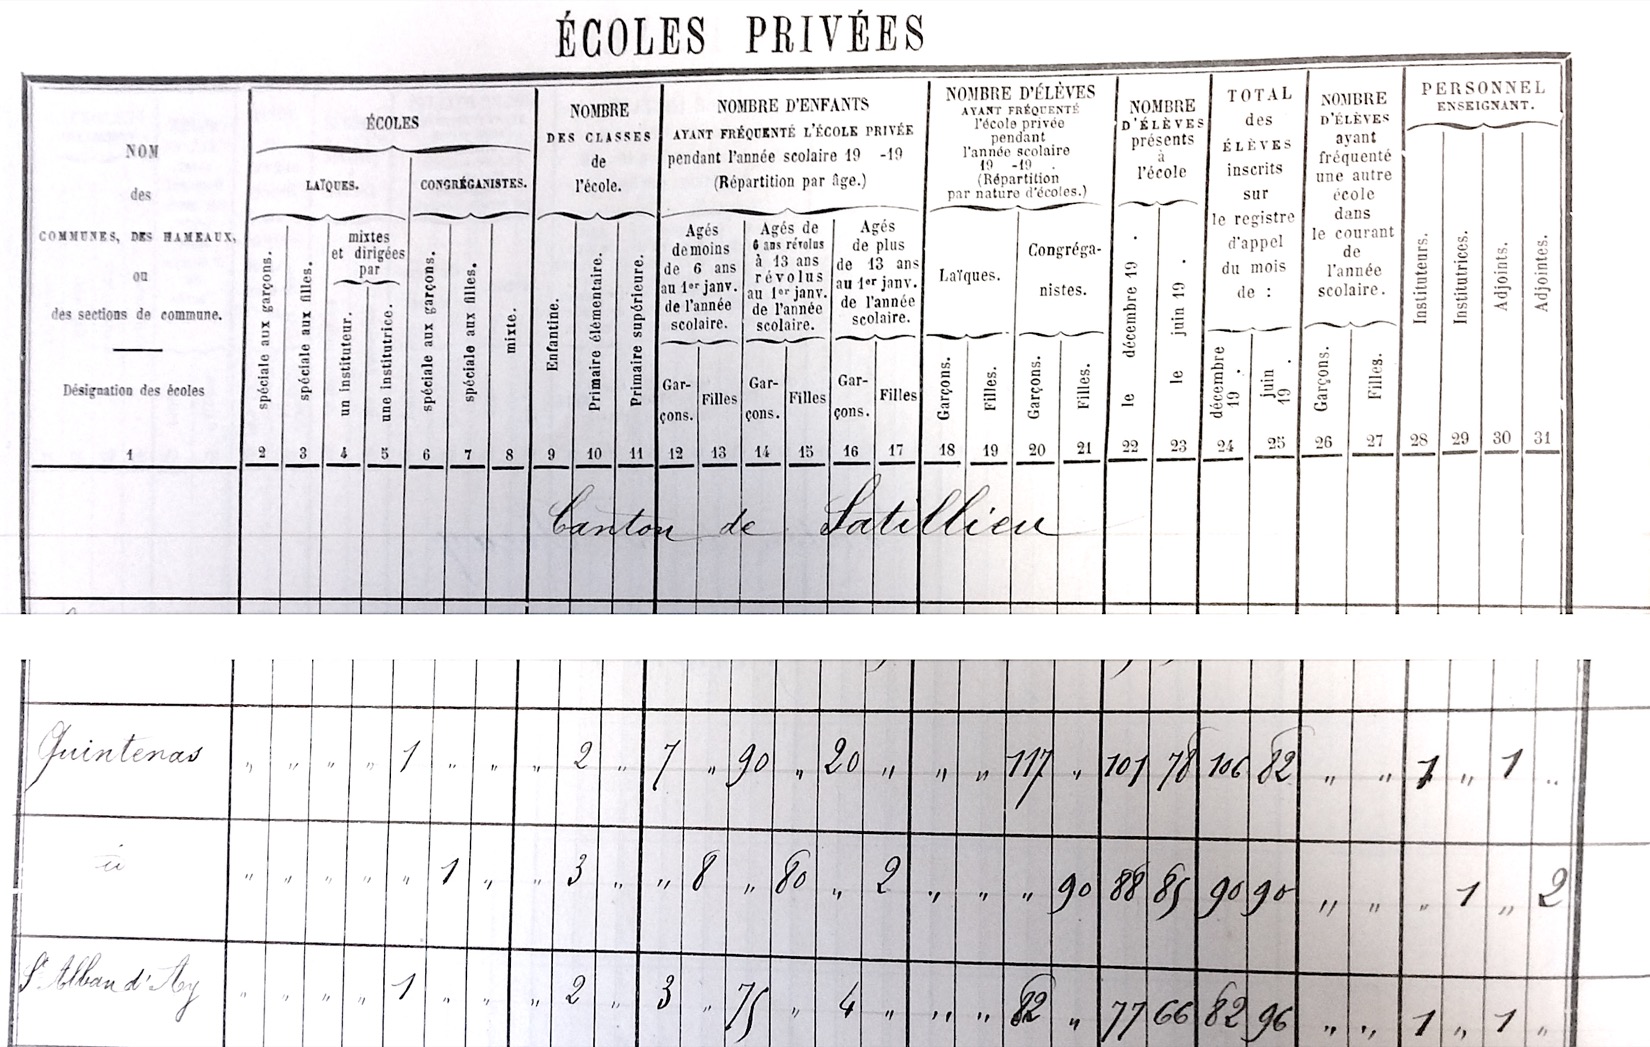 ÉCOLES PRIVÉES
NOM
des
COMMUNES, DES HAMEAUX,
ou
des sections de commune.
Désignation des écoles
1
ÉCOLES
LAÏQUES.
CONGRÉGANISTES.
spéciale aux garçons.
spéciale aux filles.
mixtes
et dirigées
par
un instituteur.
une institutrice.
spéciale aux garçons.
spéciale aux filles.
mixte.
2 3 4 5 6 7 8
NOMBRE
DES CLASSES
de
l'école.
Enfantine.
Primaire élémentaire.
Primaire supérieure.
9 10 11
NOMBRE D'ENFANTS
AYANT FRÉQUENTÉ L'ÉCOLE PRIVÉE
pendant l'année scolaire 19 -19
(Répartition par âge.)
Agés
de moins
de 6 ans
au 1er janv.
de l'année
scolaire.
Gar-
çons.
Filles
Agés de
6 ans révolus
à 13 ans
révolus
au 1er janv.
de l'année
scolaire.
Gar-
çons.
Filles
Agés
de plus
de 13 ans
au 1er janv.
de l'année
scolaire.
Gar-
çons.
Filles
12 13 14 15 16 17
NOMBRE D'ÉLÈVES
AYANT FRÉQUENTÉ
l'école privée
pendant
l'année scolaire
19 -19 .
(Répartition
par nature d'écoles.)
Laïques.
Congréga-
nistes.
Garçons.
Filles.
Garçons.
Filles.
18 19 20 21
NOMBRE
D'ÉLÈVES
présents
à
l'école
le décembre 19 .
le juin 19 .
22 23
TOTAL
des
ÉLÈVES
inscrits
sur
le registre
d'appel
du mois
de :
décembre
19 .
juin
19 .
24 25
NOMBRE
D'ÉLÈVES
ayant
fréquenté
une autre
école
dans
le courant
de
l'année
scolaire.
Garçons.
Filles.
26 27
PERSONNEL
ENSEIGNANT.
Instituteurs.
Institutrices.
Adjoints.
Adjointes.
28 29 30 31
Canton de Satillieu
Quintenas " " " " 1 " " " 2 " 7 " 90 " 20 " " " 117 " 101 78 106 82 " " 1 " 1 "
id " " " " " 1 " " 3 " " 8 " 80 " 2 " " " 90 88 85 90 90 " " " 1 " 2
St Alban d'Ay " " " " 1 " " " 2 " 3 " 75 " 4 " " " 82 " 77 66 82 96 " " 1 " 1 "